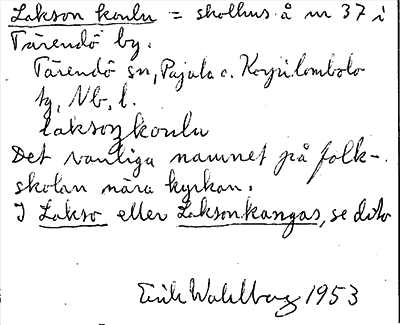 Lakson koulu = skolhus å nr 37 i
Tärendö by.
Tärendö sn, Pajala o. Korpilombolo
tg, Nb. l.
laksoŋkoulu
Det vanliga namnet på folk-
skolan nära kyrkan.
I Lakso eller Laksonkangas, se dito
Erik Wahlberg 1953